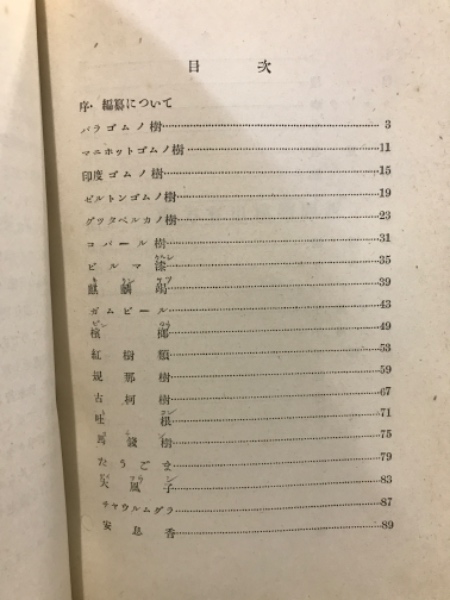 目次
序・編纂について
パラゴムノ樹 3
マニホットゴムノ樹 11
印度ゴムノ樹 15
ビルトンゴムノ樹 19
グツタペルカノ樹 23
コパール樹 31
ビルマ漆 35
麒麟竭 39
ガムビール 43
檳榔 49
紅樹類 53
規那樹 59
古柯樹 67
吐根 71
馬錢樹 75
たうごま 79
大風子 83
チャウルムグラ 87
安息香 89